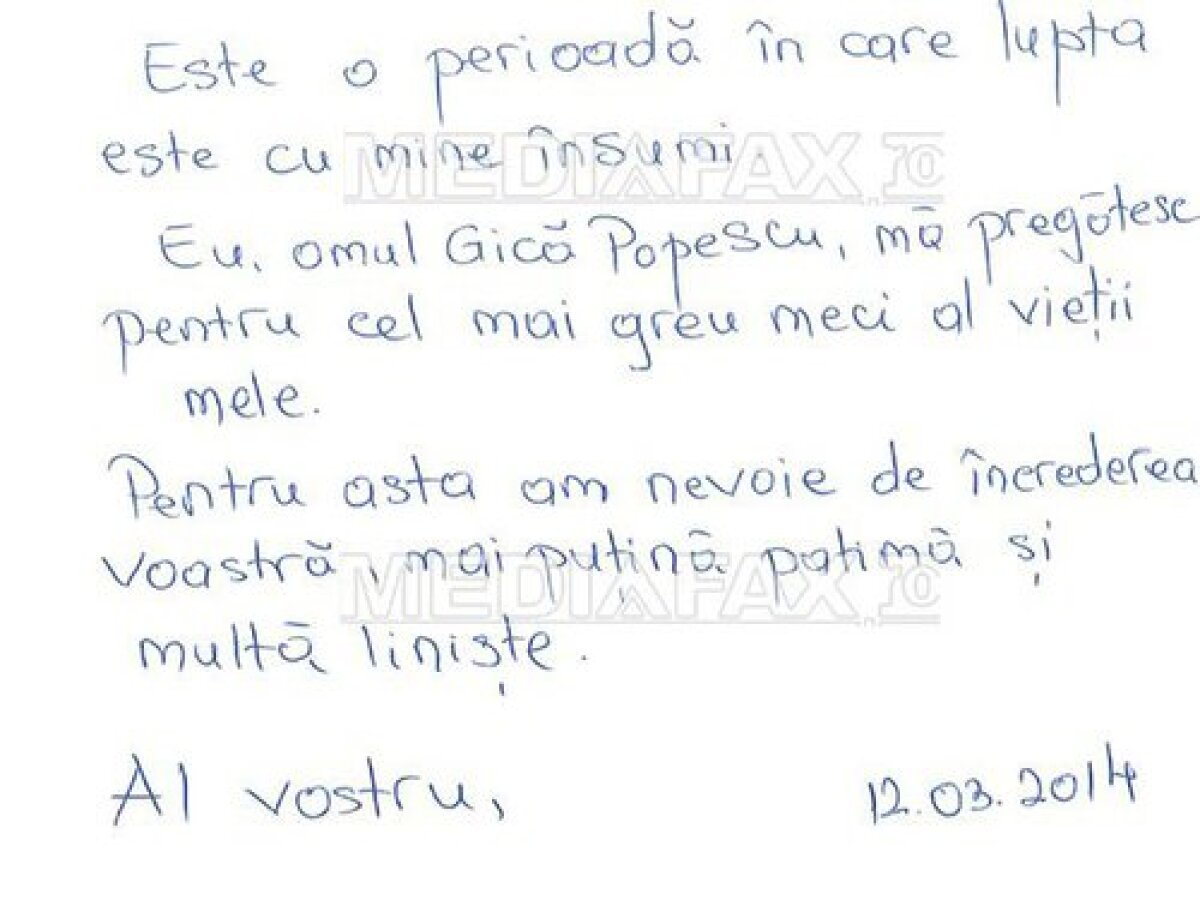 Este o perioadă în care lupta
este cu mine însumi.
MEDIAFAX.ro
Eu, omul Gică Popescu, mă pregătesc
pentru cel mai greu meci al vieții
mele.
Pentru asta am nevoie de încrederea
voastră, mai puțină patimă și
MEDIAFAX.ro
multă liniște.
Al vostru,
12.03.2014